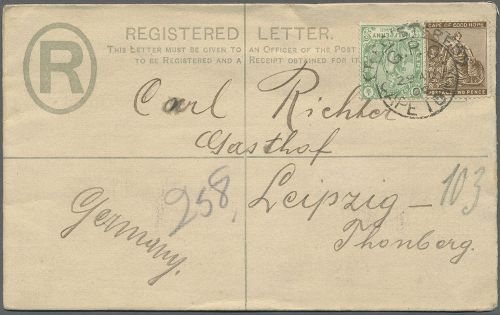 REGISTERED LETTER.
THIS LETTER MUST BE GIVEN TO AN OFFICER OF THE POST
TO BE REGISTERED AND A RECEIPT OBTAINED FOR IT
R
HALFPENNY
CAPE OF GOOD HOPE
POSTAGE TWO PENCE
CAPE TOWN
Carl Richter
Gasthof
258
Leipzig -
103
Germany.
Thonberg.